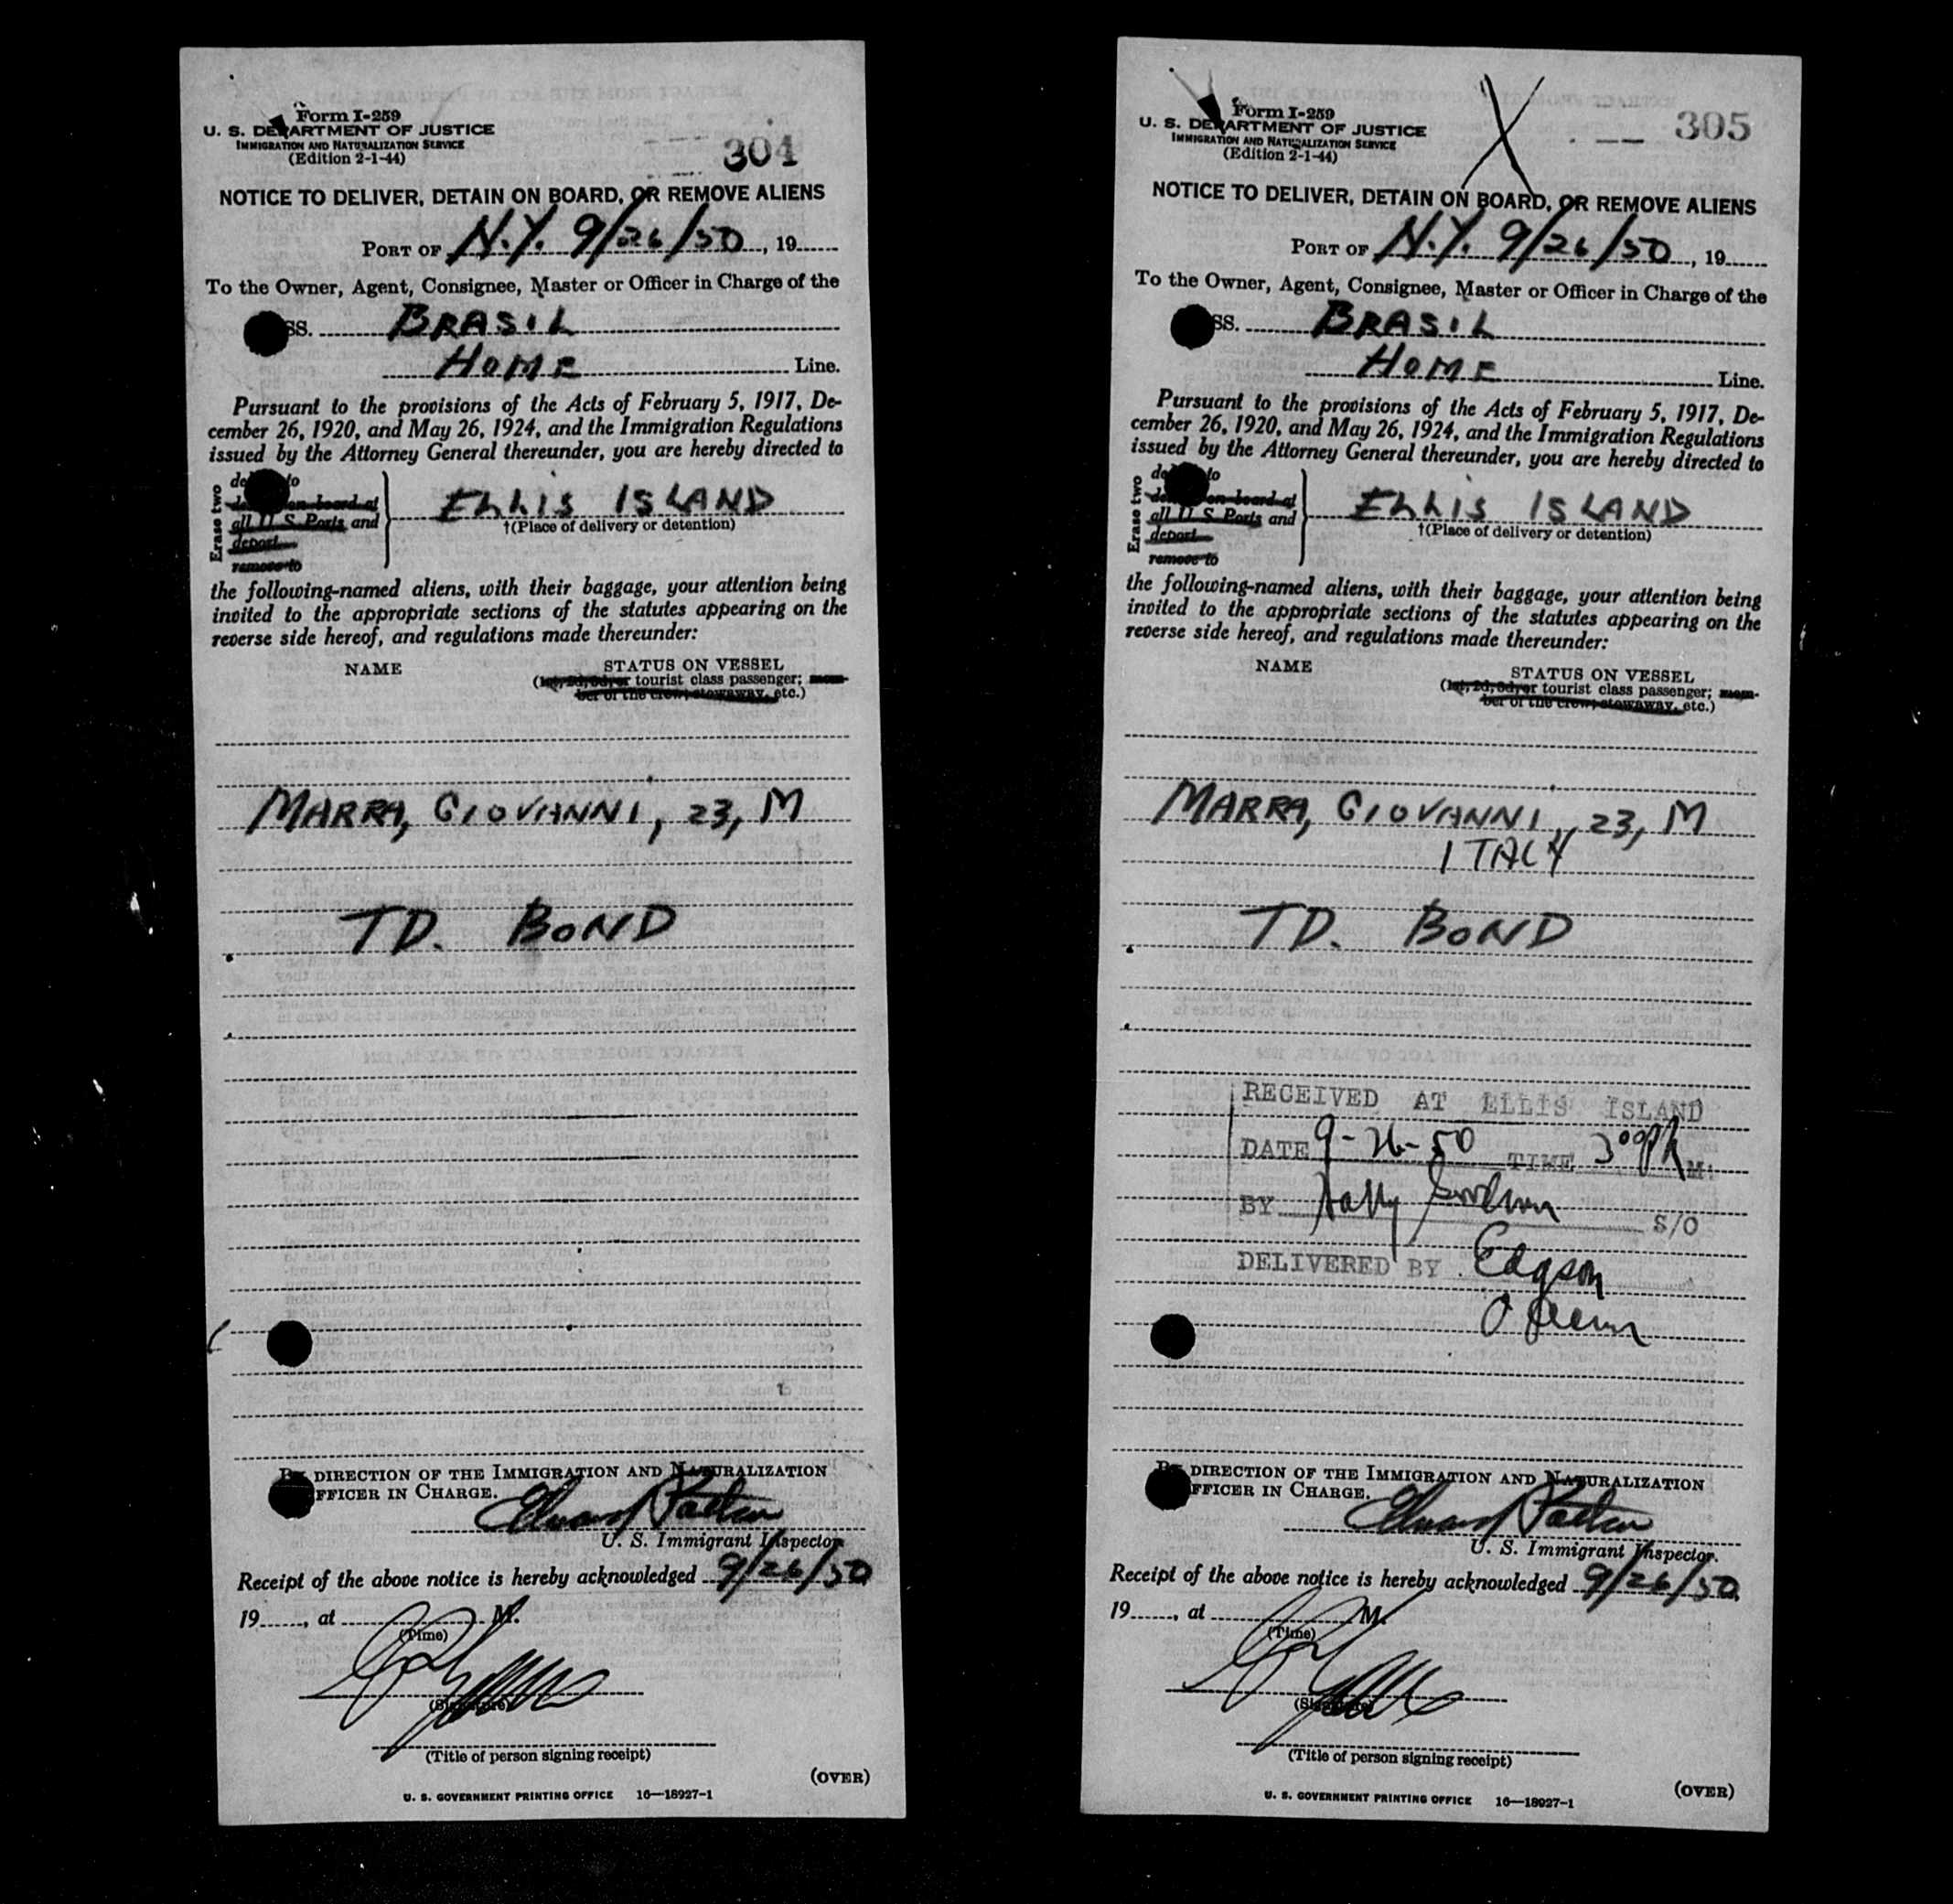 Form I-259
U. S. DEPARTMENT OF JUSTICE
IMMIGRATION AND NATURALIZATION SERVICE
(Edition 2-1-44)
304
NOTICE TO DELIVER, DETAIN ON BOARD, OR REMOVE ALIENS
PORT OF N.Y. 9/26/50, 19
To the Owner, Agent, Consignee, Master or Officer in Charge of the
SS. BRASIL
HOME Line.
Pursuant to the provisions of the Acts of February 5, 1917, De-
cember 26, 1920, and May 26, 1924, and the Immigration Regulations
issued by the Attorney General thereunder, you are hereby directed to
Erase two
to
on board at
all U. S. Ports and
deport
remove to
ELLIS ISLAND
†(Place of delivery or detention)
the following-named aliens, with their baggage, your attention being
invited to the appropriate sections of the statutes appearing on the
reverse side hereof, and regulations made thereunder:
NAME
STATUS ON VESSEL
(1st, 2d, 3d, or tourist class passenger; mem-
ber of the crew; stowaway, etc.)
MARRA, GIOVANNI, 23, M
TD. BOND
BY DIRECTION OF THE IMMIGRATION AND NATURALIZATION
FFICER IN CHARGE.
U. S. Immigrant Inspector.
Receipt of the above notice is hereby acknowledged 9/26/50
19, at M.
(Time)
(Signature)
(Title of person signing receipt)
(OVER)
U. S. GOVERNMENT PRINTING OFFICE 16—18927-1
Form I-259
U. S. DEPARTMENT OF JUSTICE
IMMIGRATION AND NATURALIZATION SERVICE
(Edition 2-1-44)
305
NOTICE TO DELIVER, DETAIN ON BOARD, OR REMOVE ALIENS
PORT OF N.Y. 9/26/50, 19
To the Owner, Agent, Consignee, Master or Officer in Charge of the
SS. BRASIL
HOME Line.
Pursuant to the provisions of the Acts of February 5, 1917, De-
cember 26, 1920, and May 26, 1924, and the Immigration Regulations
issued by the Attorney General thereunder, you are hereby directed to
Erase two
to
on board at
all U. S. Ports and
deport
remove to
ELLIS ISLAND
†(Place of delivery or detention)
the following-named aliens, with their baggage, your attention being
invited to the appropriate sections of the statutes appearing on the
reverse side hereof, and regulations made thereunder:
NAME
STATUS ON VESSEL
(1st, 2d, 3d, or tourist class passenger; mem-
ber of the crew; stowaway, etc.)
MARRA, GIOVANNI, 23, M
ITALY
TD. BOND
RECEIVED AT ELLIS ISLAND
DATE 9-26-50 TIME 3:00 P M.
BY S/O
DELIVERED BY
BY DIRECTION OF THE IMMIGRATION AND NATURALIZATION
FFICER IN CHARGE.
U. S. Immigrant Inspector.
Receipt of the above notice is hereby acknowledged 9/26/50,
19, at M.
(Time)
(Signature)
(Title of person signing receipt)
(OVER)
U. S. GOVERNMENT PRINTING OFFICE 16—18927-1